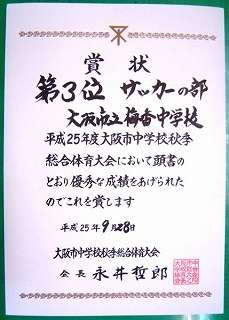 賞状
第3位 サッカーの部
大阪市立梅香中学校
平成25年度大阪市中学校秋季
総合体育大会において頭書の
とおり優秀な成績をあげられた
のでこれを賞します
平成25年9月28日
大阪市中学校秋季総合体育大会
会長 永井哲郎